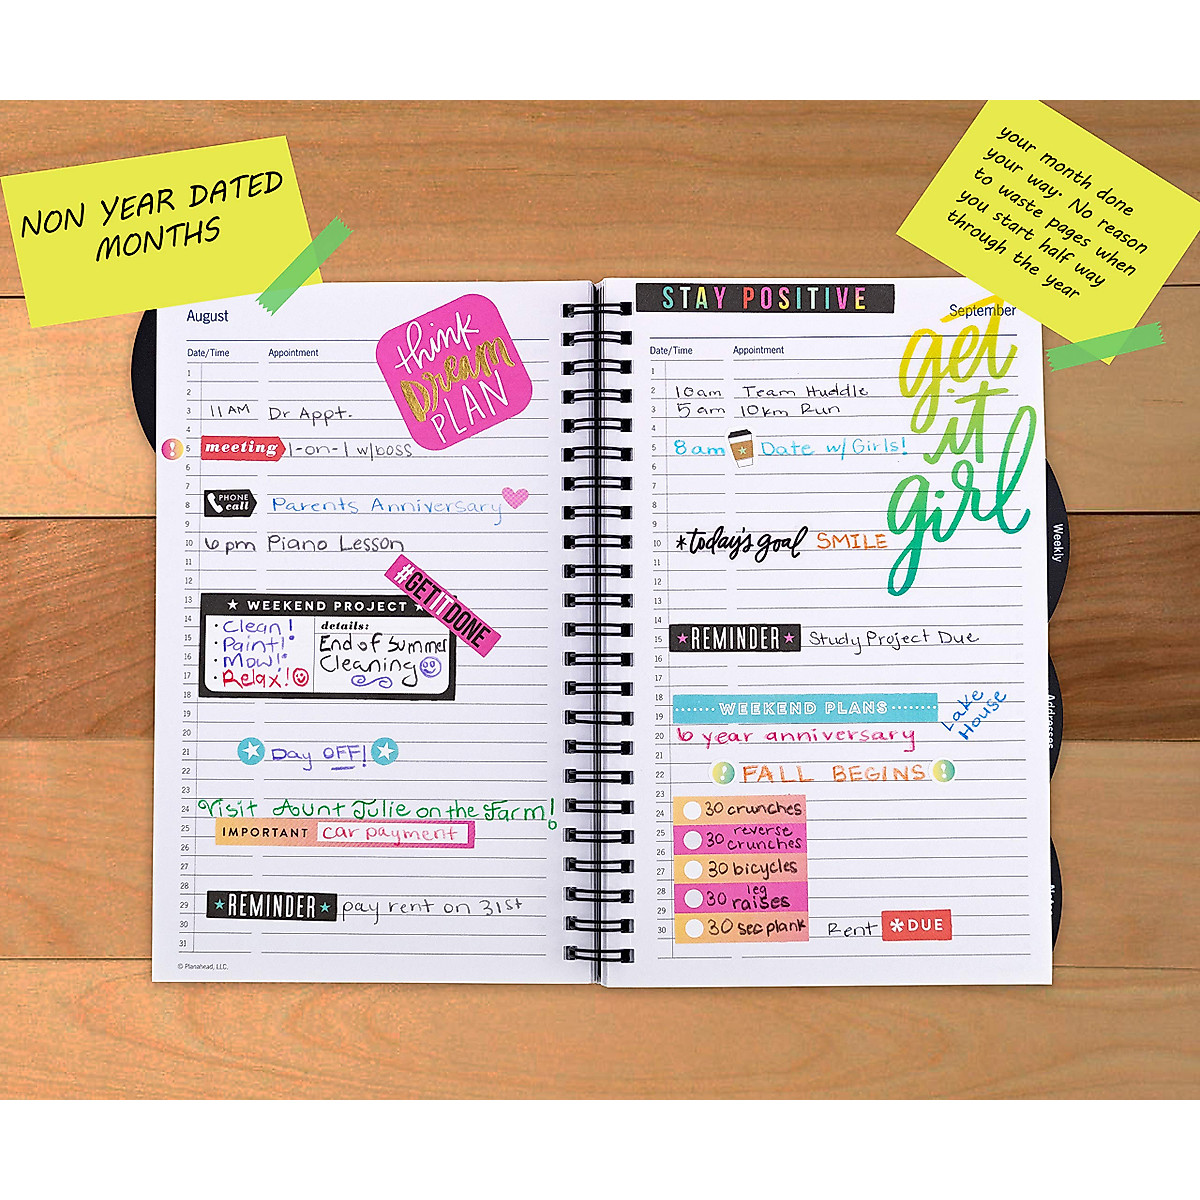 NON YEAR DATED
MONTHS
your month done
your way. No reason
to waste pages when
you start half way
through the year
August
Date/Time Appointment
think
Dream
PLAN
1
2
3 11 AM Dr Appt.
4
5 ! meeting 1-on-1 w/boss
6
7
8 PHONE call Parents Anniversary
9
10 6 pm Piano Lesson
11
12
#GETITDONE
13 ★ WEEKEND PROJECT ★
14 · Clean! details:
15 · Paint! End of Summer
16 · Mow! Cleaning
17 · Relax!
18
19
20
21 Day OFF!
22
23
24 Visit Aunt Julie on the Farm!
25 IMPORTANT car payment
26
27
28
29 ★ REMINDER ★ pay rent on 31st
30
31
© Planahead, LLC.
STAY POSITIVE
September
Date/Time Appointment
get
it
girl
1
2 10am Team Huddle
3 5am 10km Run
4
5 8am Date w/ Girls!
6
7
8
9
10 *today's goal SMILE
11
12
13
14
15 ★ REMINDER ★ Study Project Due
16
17
18
19 WEEKEND PLANS Lake
House
20 6 year anniversary
21
22 ! FALL BEGINS !
23
24 30 crunches
25 30 reverse
crunches
26
27 30 bicycles
28 30 leg
raises
29
30 30 sec plank Rent *DUE
Weekly
Addresses